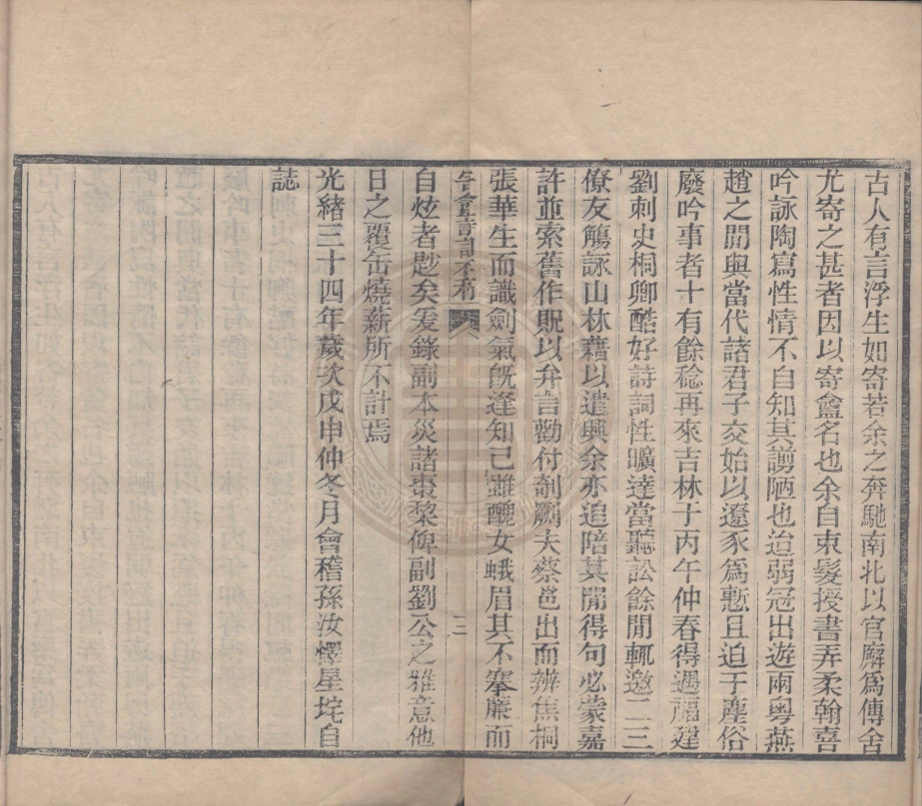 古人有言浮生如寄若余之奔馳南北以官廨爲傳舍
尤寄之甚者因以寄盦名也余自束髮授書弄柔翰喜
吟詠陶寫性情不自知其謭陋也迨弱冠出遊兩粤燕
趙之間與當代諸君子交始以遼豕爲慙且迫于塵俗
廢吟事者十有餘稔再來吉林于丙午仲春得遇醞瑳
劉刺史桐卿酷好詩詞性曠達當聽訟餘閒輒邀二三
僚友觴詠山林藉以遣興余亦追陪其閒得句必蒙嘉
許並索舊作貺以弁言勸付剞劂夫蔡邕出而辨焦桐
張華生而識劍氣旣逢知己雖醜女蛾眉其不搴簾而
寄盦詩詞存稿
三
自炫者尠矣爰錄副本災諸棗棃俾副劉公之雅意他
日之覆缶燒薪所不計焉
光緒三十四年歲次戊申仲冬月會稽孫汝懌星垞自
誌